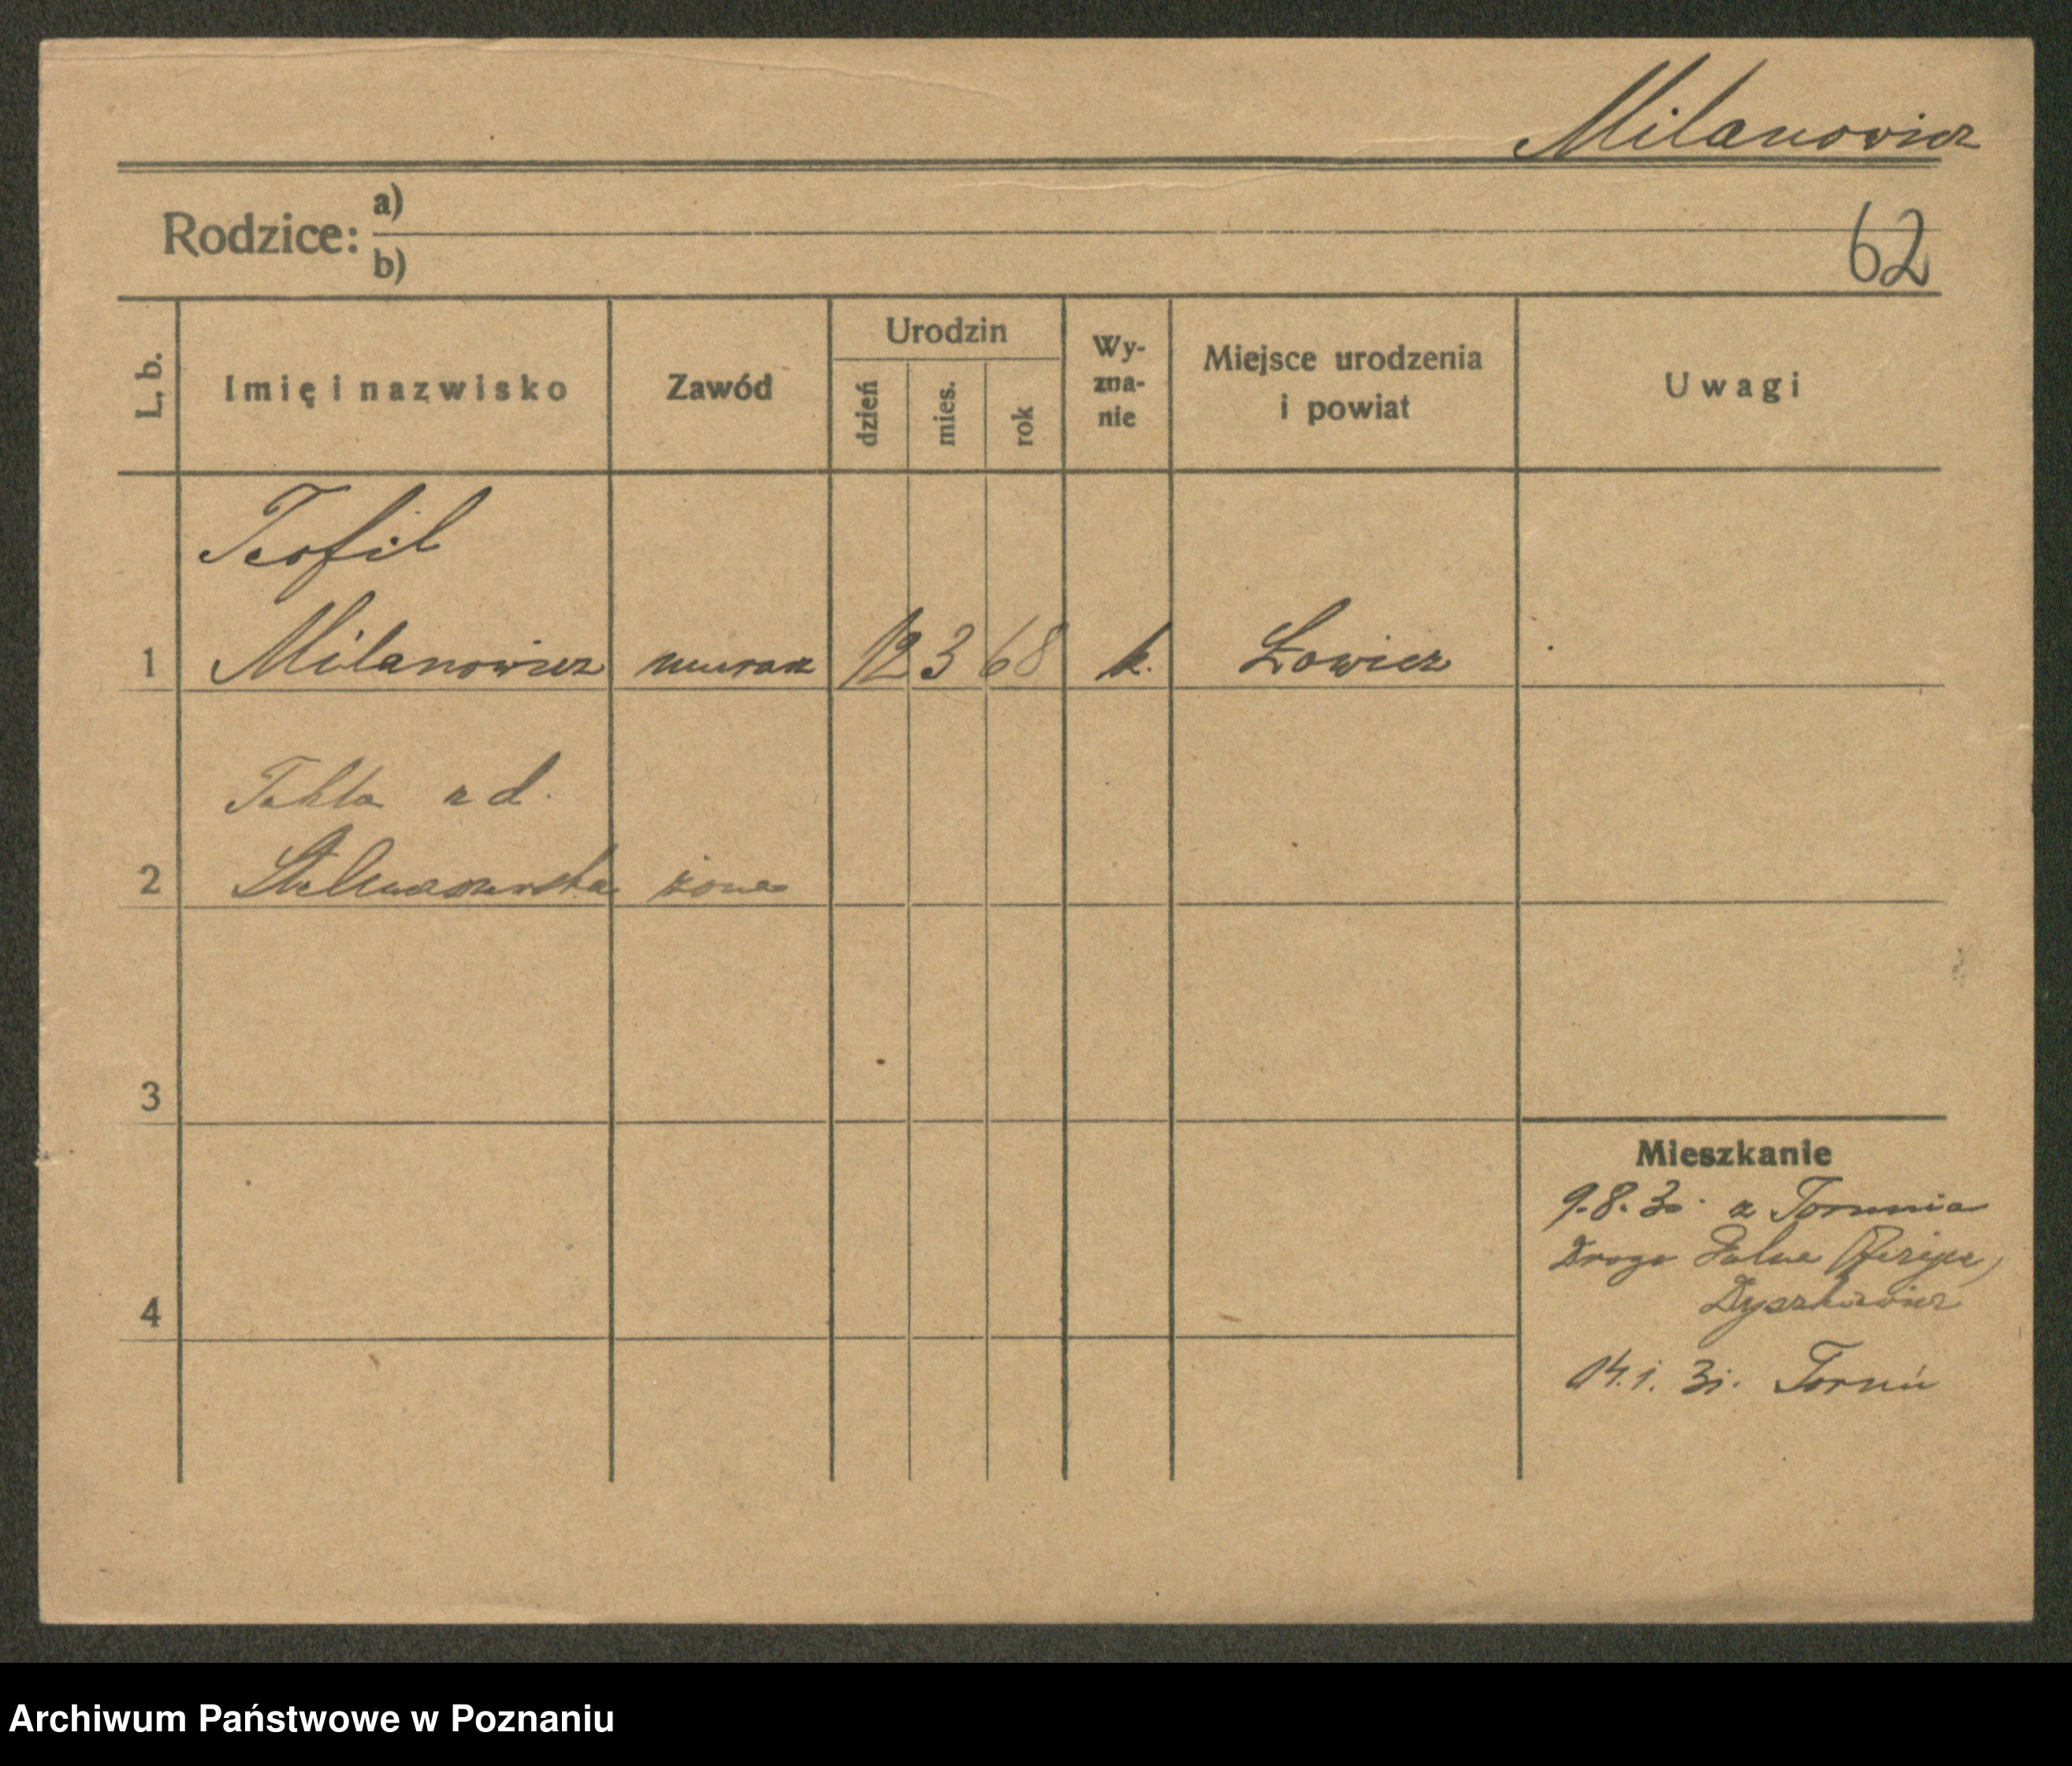 Milanowicz
Rodzice: a)
b)
62
L. b. Imię i nazwisko Zawód Urodzin dzień mies. rok Wy-zna-nie Miejsce urodzenia i powiat Uwagi
Teofil
1 Milanowicz murarz 12 3 68 k. Łowicz
Tekla z d.
2 żona
3
Mieszkanie
9.8.30 z Torunia
Droga Dyszkiewicz
4
14.1.31. Toruń
Archiwum Państwowe w Poznaniu